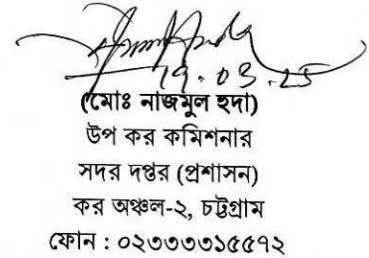 19.03.25
(মোঃ নাজমুল হুদা)
উপ কর কমিশনার
সদর দপ্তর (প্রশাসন)
কর অঞ্চল-২, চট্টগ্রাম
ফোন : ০২৩৩৩৩১৫৫৭২